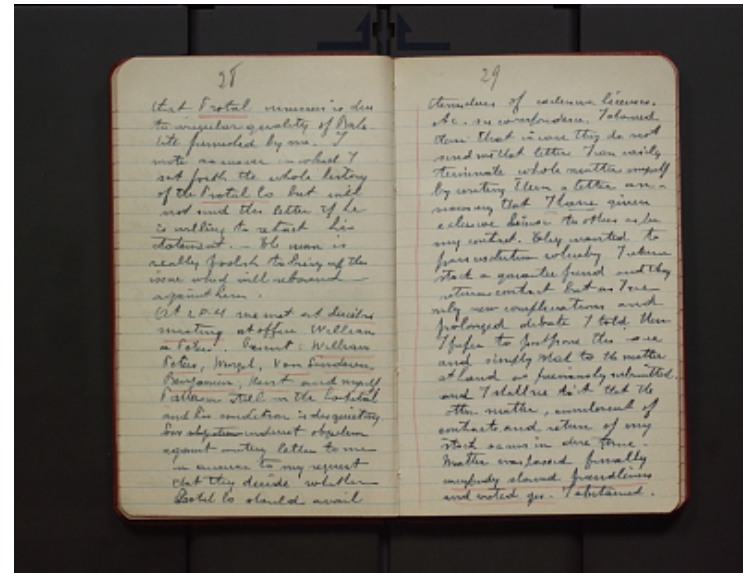 28
that Protal business is due
to irregular quality of Bake
lite furnished by me. I
wrote answer in which I
set forth the whole history
of the Protal Co but will
not send this letter if he
is willing to retract his
statement. - The man is
really foolish to bring up this
issue which will rebound
against him.
At 2 P.M. we met at directors
meeting at office William
Peter. Present: William
Peter, Wurzel, Van
Benjamin, Kent and myself
Patterson still in the hospital
and his condition is disquieting.
indirect objection
against writing letter to me
in answer to my request
that they decide whether
Protal Co should avail
29
themselves of exclusive licenses.
&c. see correspondence. I showed
them that in case they do not
send me that letter I can easily
terminate whole matter myself
by writing them a letter an-
nouncing that I have given
exclusive license to others as be
my contract. They wanted to
pass resolution whereby I return
stock a guarantee fund and they
return contract but as I see
only new complications and
prolonged debate I told them
I prefer to postpone this
and simply to the matter
at hand as previously submitted.
and I shall see to it that the
other matter, annulment of
contracts, and return of my
stock occurs in due time.
Matter was passed finally
everybody showed friendliness
and voted yes. I abstained.